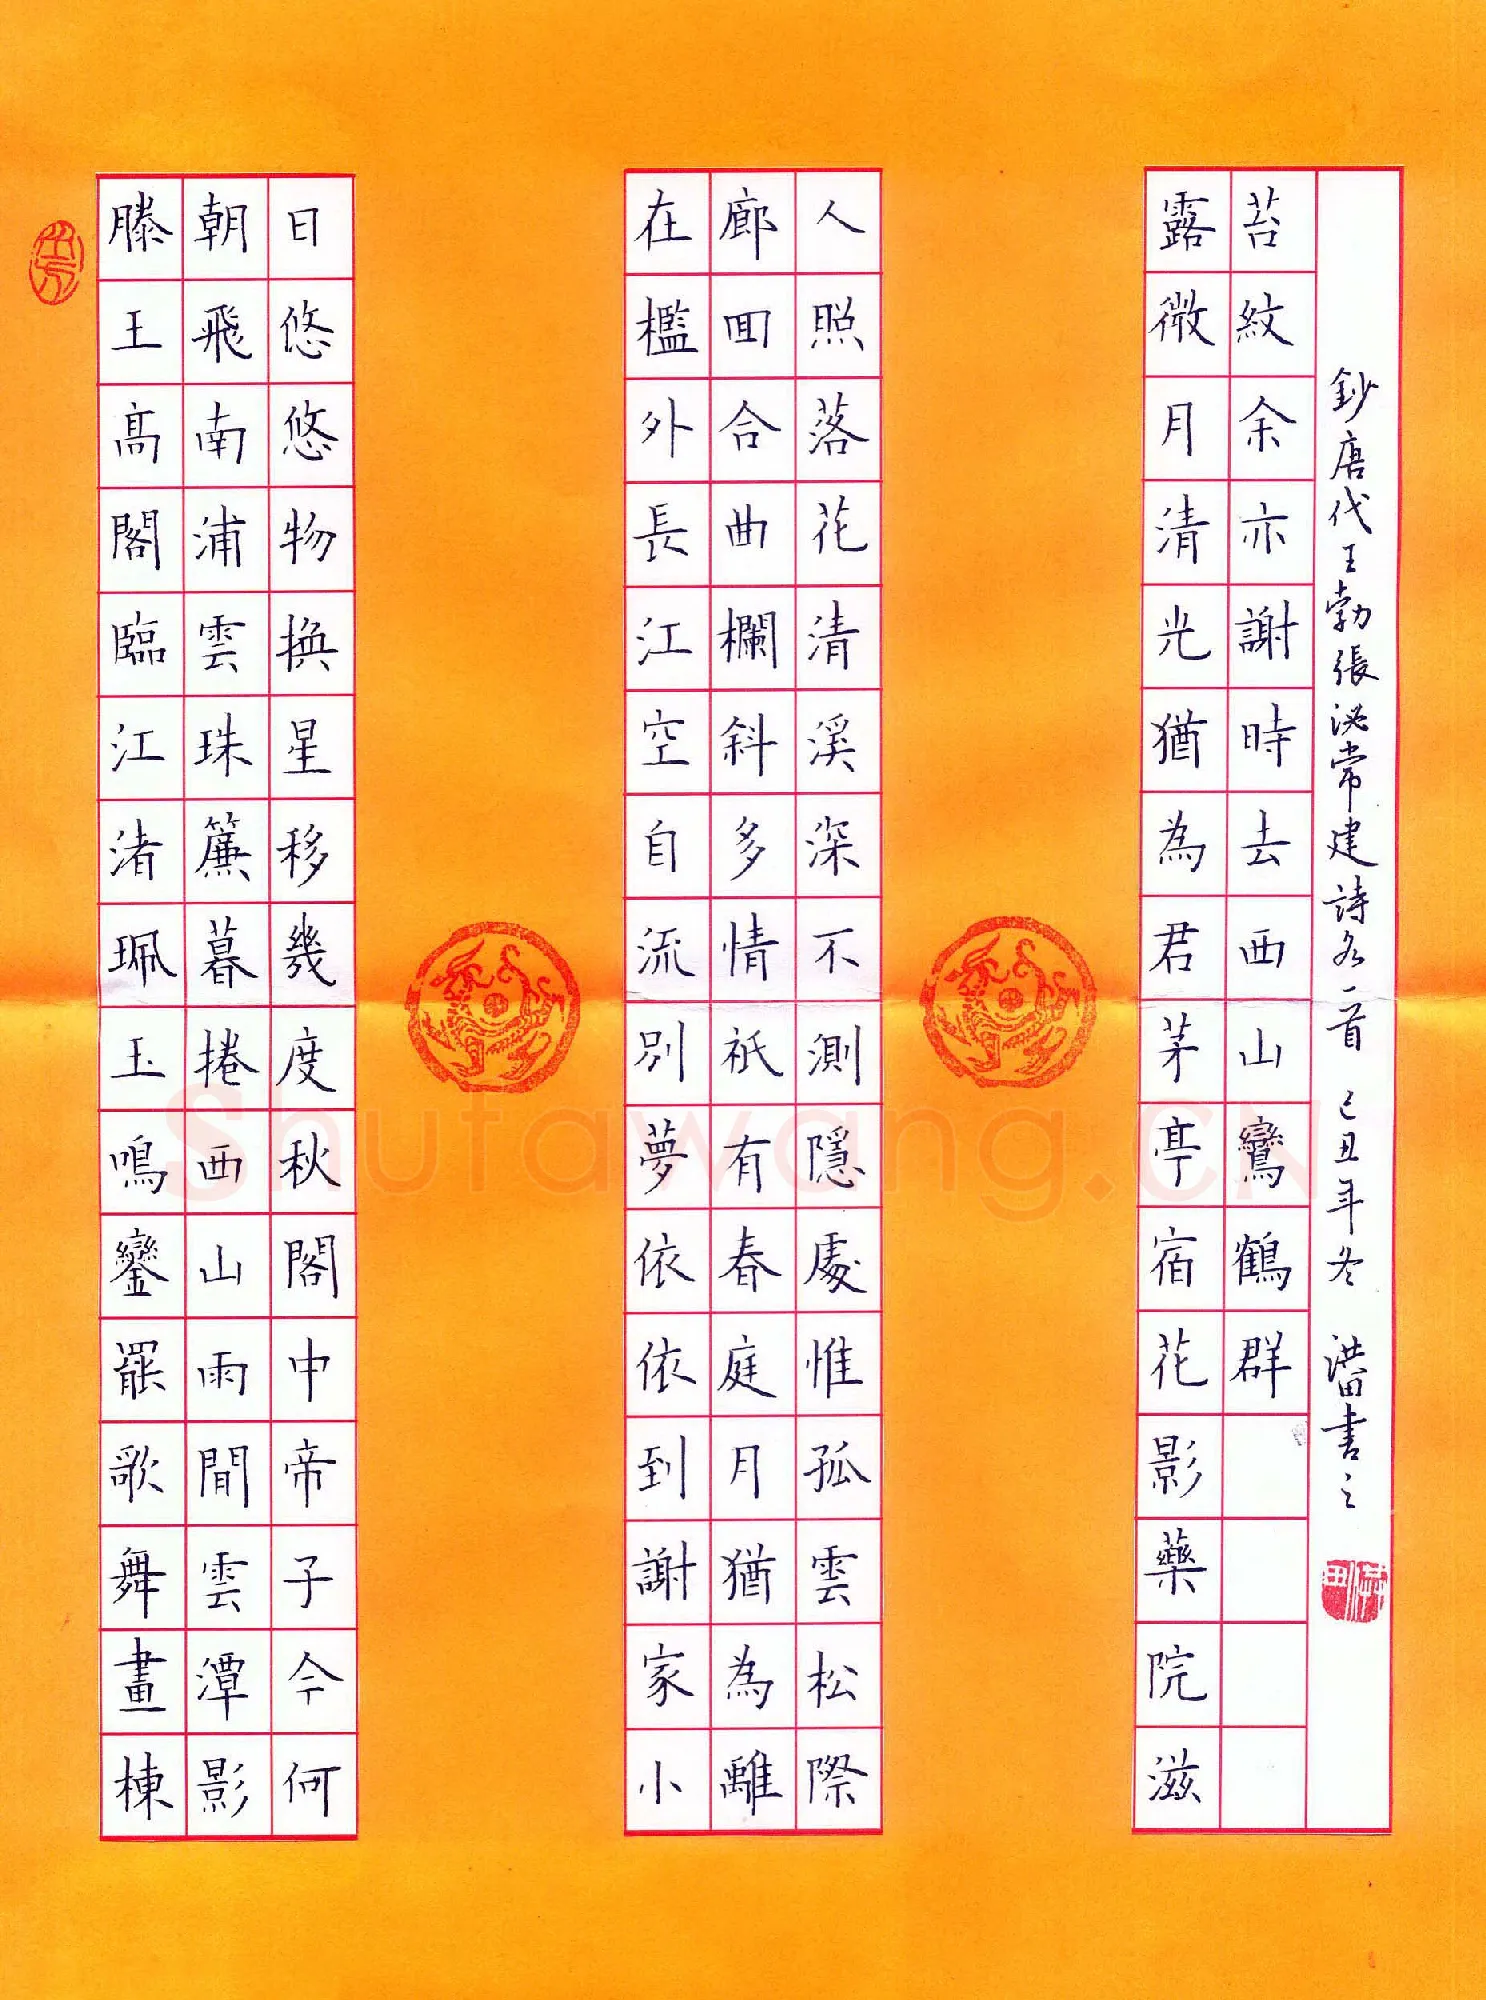 滕王髙閣臨江渚珮玉鳴鑾罷歌舞畫棟
朝飛南浦雲珠簾暮捲西山雨間雲潭影
日悠悠物換星移幾度秋閣中帝子今何
在檻外長江空自流別夢依依到謝家小
廊囬合曲欄斜多情祇有春庭月猶為離
人照落花清溪深不測隱處惟孤雲松際
露微月清光猶為君茅亭宿花影藥院滋
苔紋余亦謝時去西山鸞鶴群
鈔唐代王勃張泌常建詩各一首 己丑年冬 洪田書之
Shufawang.CN